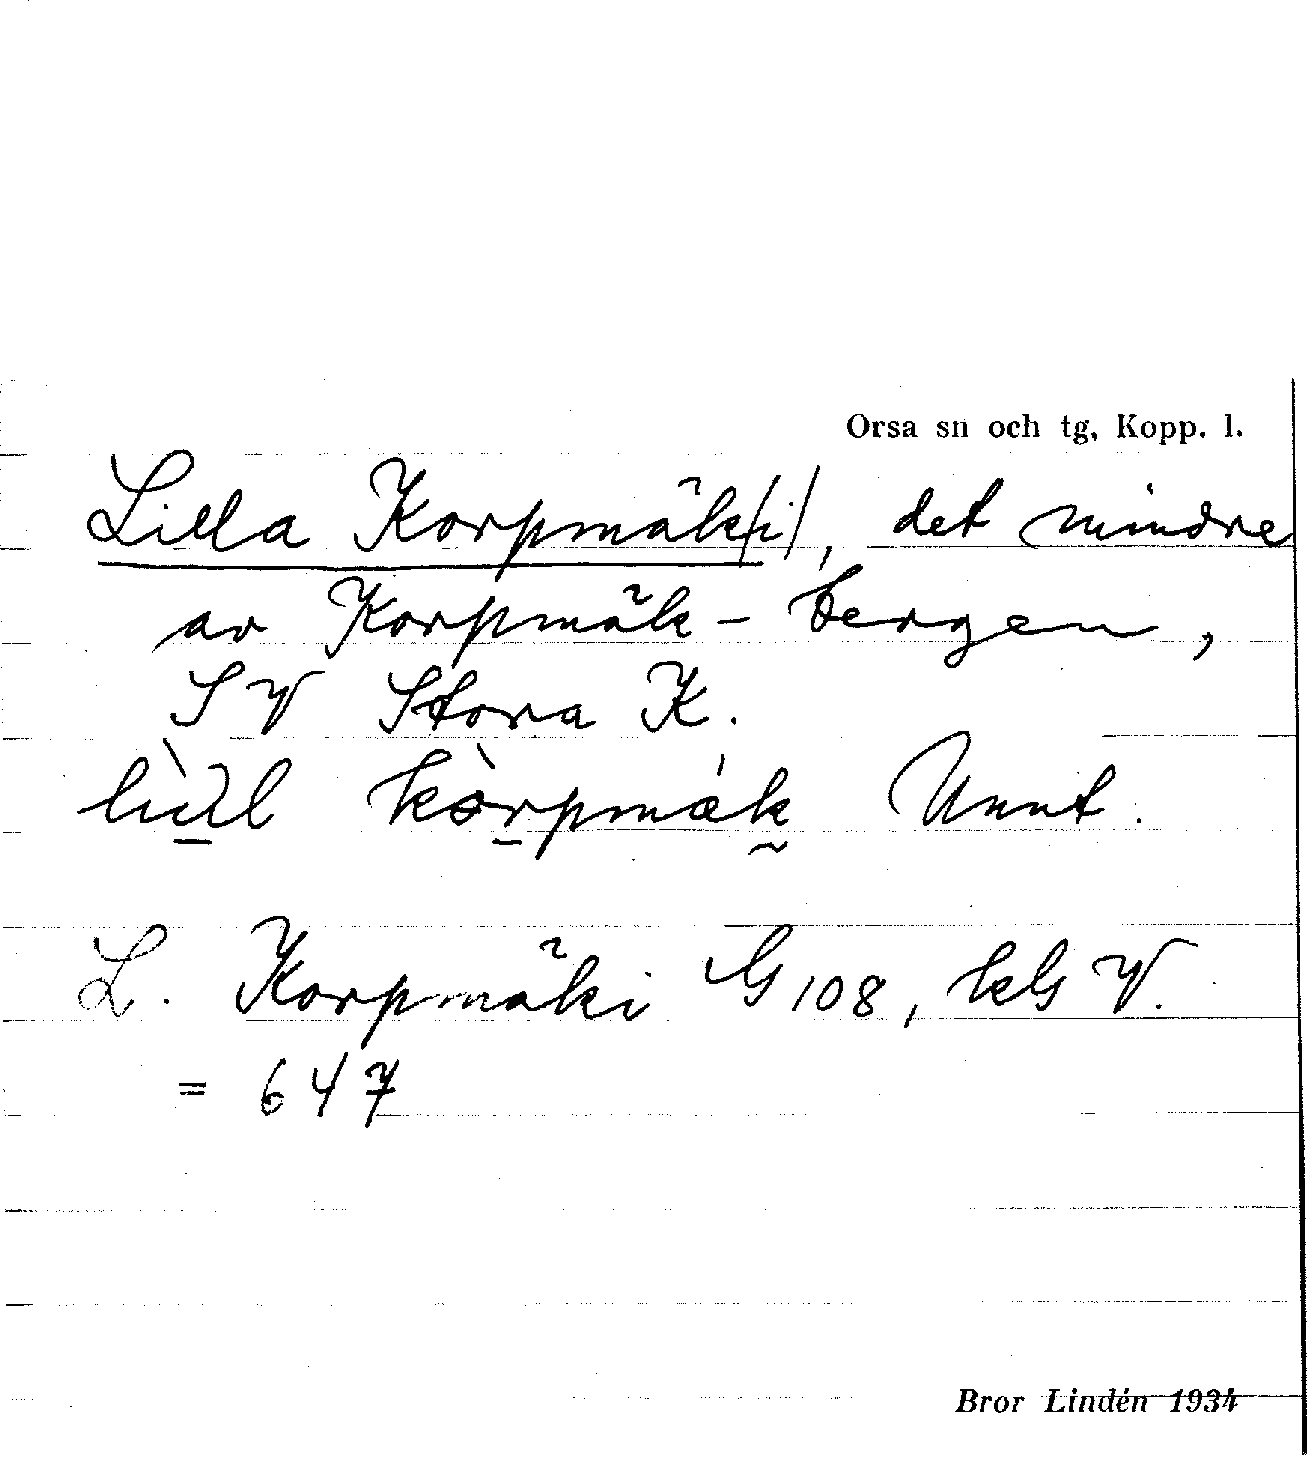 Orsa sn och tg, Kopp. l.
Lilla Korpmäk/i/, det mindre
av Korpmäk-bergen,
SV Stora K.
kòrpmák Unnt.
L. Korpmäki G 108, kbl V.
= 647
Bror Lindén 1934